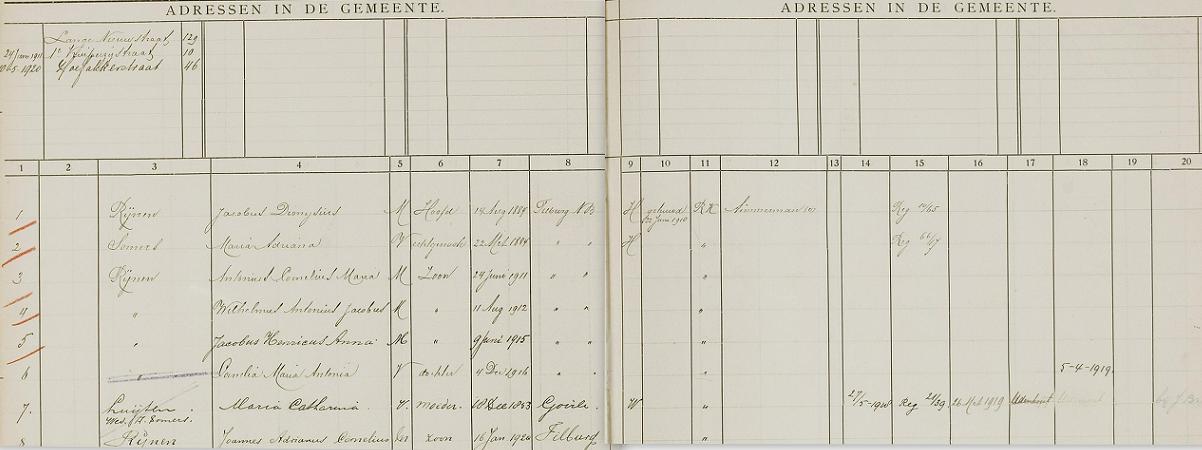 ADRESSEN IN DE GEMEENTE. ADRESSEN IN DE GEMEENTE.
Lange Nieuwstraat 129
24 Juni 1911 1e straat 10
1920 Hoefakkerstraat 46
1 2 3 4 5 6 7 8 9 10 11 12 13 14 15 16 17 18 19 20
1 Rijnen Jacobus Dionysius M Hoofd Aug 1884 Tilburg N.B. H gehuwd RK timmerman Reg
Juni 1910
2 Somers Maria Adriana V echtgenoote 22 1884 " " H " Reg
3 Rijnen Antonius Cornelius Maria M Zoon 24 Juni 1911 " " "
4 " Wilhelmus Antonius Jacobus M " 11 Aug 1912 " " "
5 " Jacobus Henricus Anna M " 9 Juni 1915 " " "
6 " Camilia Maria Antonia V dochter 4 Dec 1916 " " " 5-4-1919.
7. Luijten. Maria Catharina V. moeder. 18 Dec 1853 Goirle. W " 27/5-1918 Reg 24/39 26 Mrt 1919 Udenhout
Wed. Somers.
8 Rijnen Joannes Adrianus Cornelius zoon 16 Jan 1920 Tilburg "